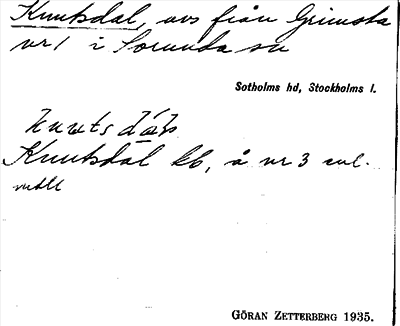 Knutsdal, avs från Grimsta
nr 1 i Sorunda sn
Sotholms hd, Stockholms l.
knutsdál
Knutsdal lb, å nr 3 enl.
mtll
GÖRAN ZETTERBERG 1935.